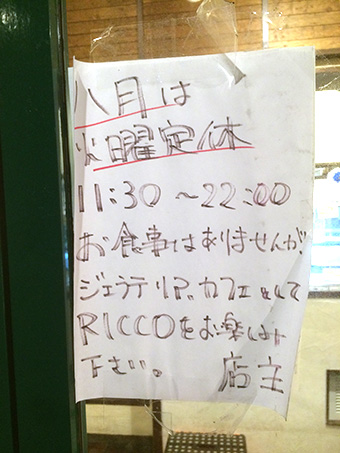 八月は
火曜定休
11:30 〜22:00
お食事はありませんが
ジェラテリア、カフェとして
RICCOをお楽しみ
下さい。 店主